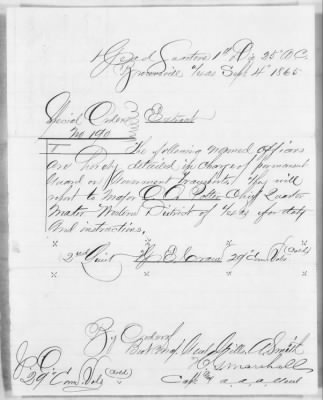 Head Quarters 1st Div 25" A.C.
Brownsville Texas Sept 4" 1865
Special Orders Extract
No 190
I The following named officers
are hereby detailed in charge of permanent
Guard on Government Transports. They will
report to Major C. E. Potter Chief Quarter
Master Western District of Texas for duty
and instructions.
x x x x
2nd Lieut E. 29" Conn Vols (Cold)
x x x x
By Order of
Bvt Maj Genl Giles A Smith
Marshall
Capt & a.a.a. Genl
C.O.
29" Conn Vols (Cold)